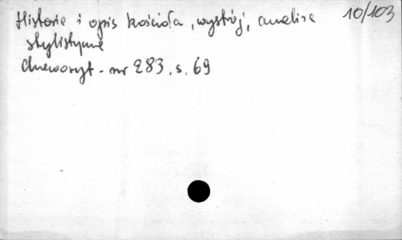 10/103
Historia i opis kościoła, wystrój, analiza
stylistyczna
drzeworyt - nr 283, s. 69